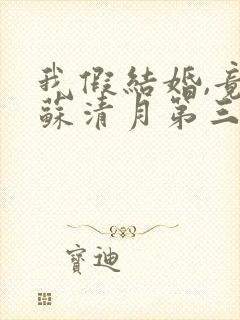 我假結婚,竟
蘇清月第三
寶迪